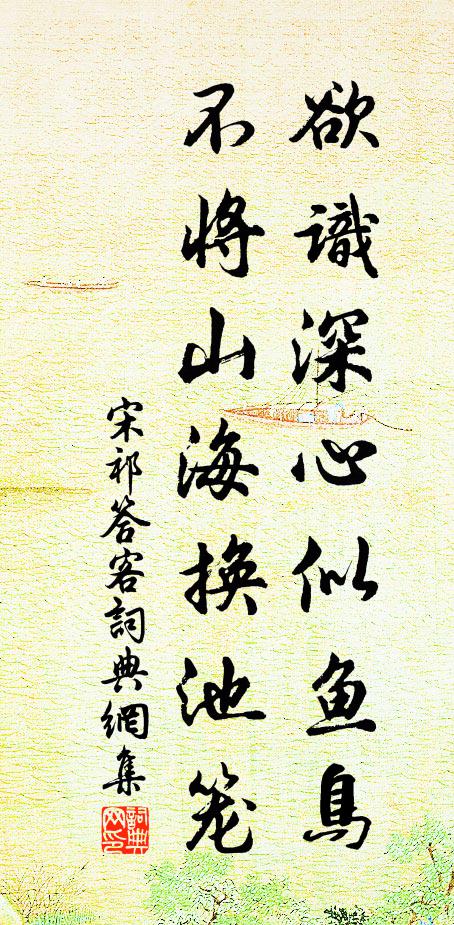 欲識深心似鱼鳥
不將山海換池笼
宋祁答客詞典網集
詞典网印